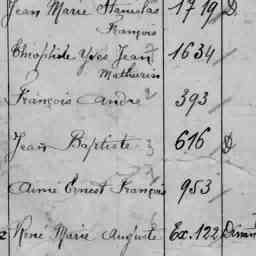 Jean Marie Stanislas 1719 D.
François
Théophile Yves Jean 7 1634
Mathurin
François André 2 393
Jean Baptiste 3 616 D
Aimé Ernest François 7 953
René Marie Auguste 6 Ex. 122